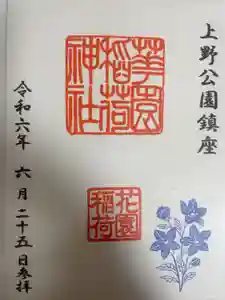 上野公園鎮座
華園
稲荷
神社
花園
稲荷
令和六年 六月二十五日参拝